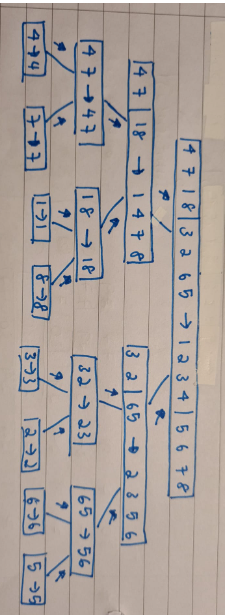 4 7 1 8 | 3 2 6 5 → 1 2 3 4 | 5 6 7 8
4 7 | 1 8 → 1 4 7 8
3 2 | 6 5 → 2 3 5 6
4 7 → 4 7
1 8 → 1 8
3 2 → 2 3
6 5 → 5 6
4→4
7→7
1→1
8→8
3→3
2→2
6→6
5→5